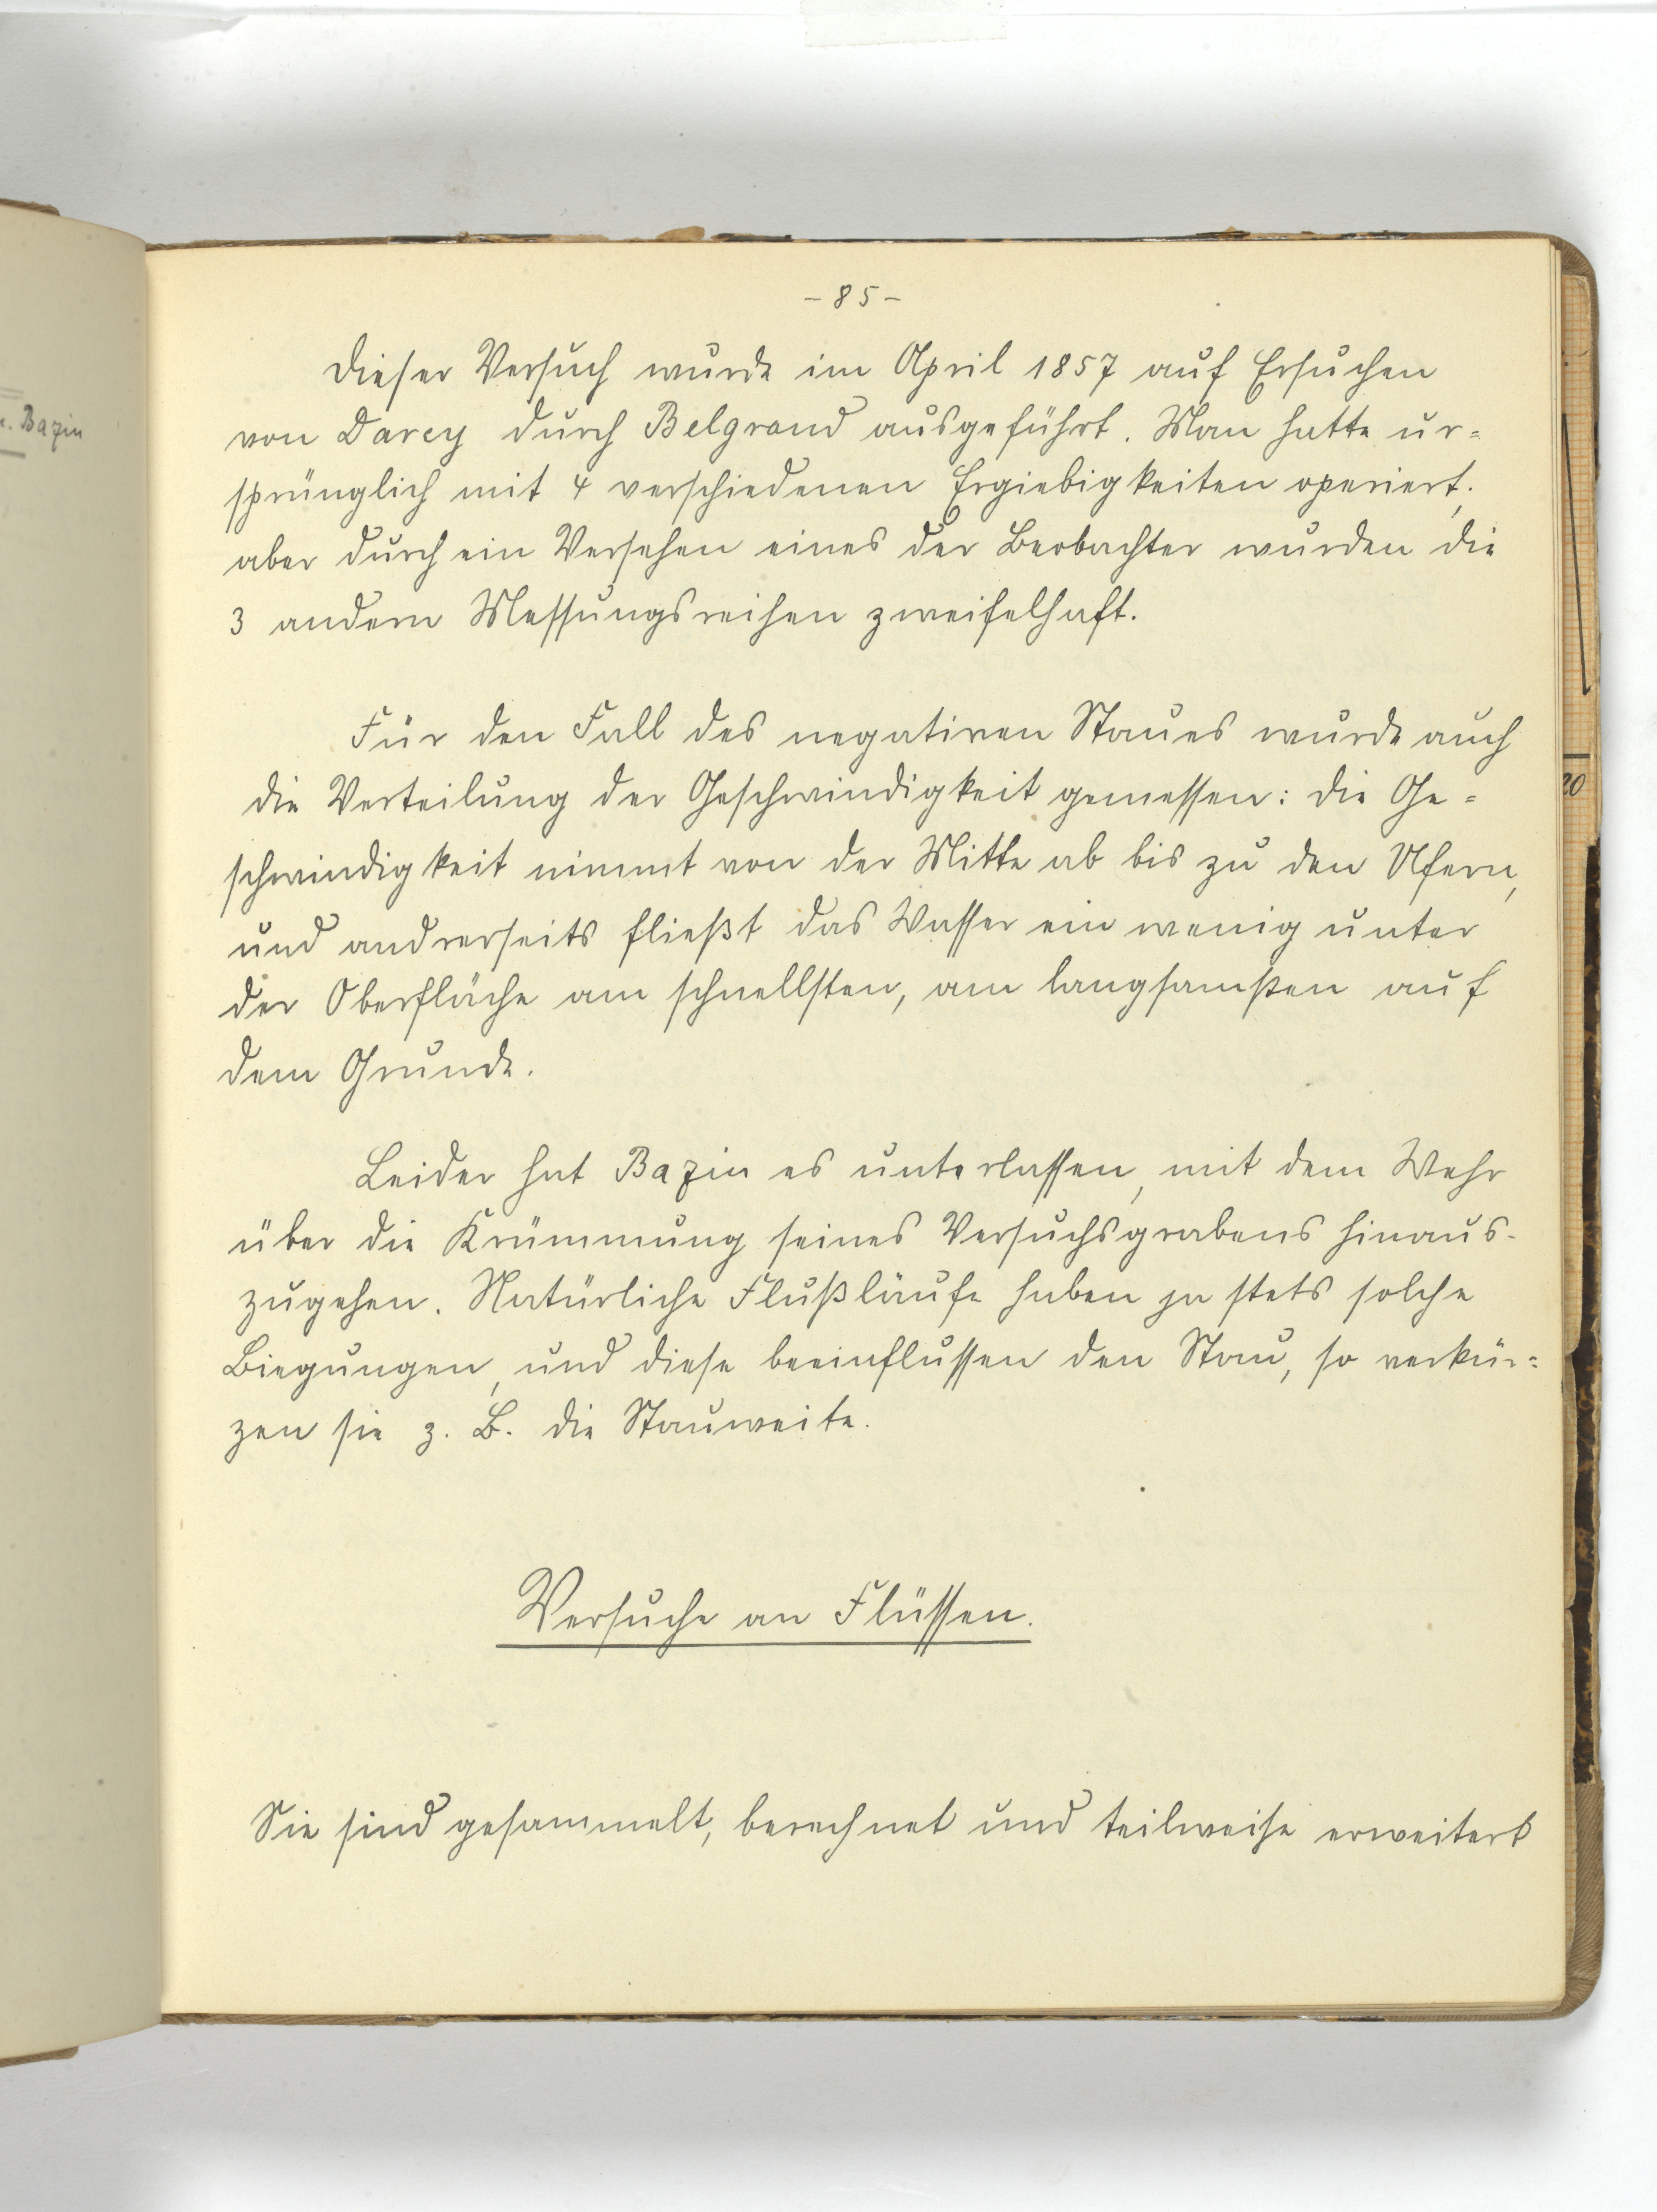 - 85 -
Dieser Versuch wurde im April 1857 auf Ersuchen
von Darcy durch Belgrand ausgeführt. Man hatte ur=
sprünglich mit 4 verschiedenen Ergiebigkeiten operiert;
aber durch ein Versehen eines der Beobachter wurden die
3 andern Messungsreihen zweifelhaft.
Für den Fall des negativen Staues wurde auch
die Verteilung der Geschwindigkeit gemessen: die Ge=
schwindigkeit nimmt von der Mitte ab bis zu den Ufern,
und andrerseits fließt das Wasser ein wenig unter
der Oberfläche am schnellsten, am langsamsten auf
dem Grunde.
Leider hat Bazin es unterlassen, mit dem Wehr
über die Krümmung seines Versuchsgrabens hinaus-
zugehen. Natürliche Flußläufe haben ja stets solche
Biegungen, und diese beeinflussen den Stau, so verkür=
zen sie z. B. die Stauweite.
Versuche an Flüssen.
Sie sind gesammelt, berechnet und teilweise erweitert
Bazin
20